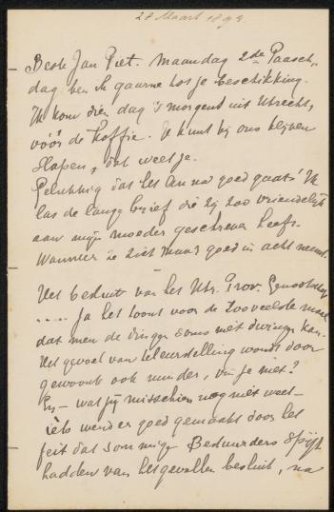 28 Maart 1899
Beste Jan Piet. Maandag 2de Paasch-
dag ben ik gaarne tot je beschikking.
Ik kom dien dag 's morgens uit Utrecht,
vóór de koffie. Je kunt bij ons blijven
slapen, dat weet je.
Gelukkig dat het An nu goed gaat! Ik
las de lange brief die zij zoo vriendelijk
aan mijn moeder geschreven heeft.
Wanneer ze zich maar goed in acht neemt.
Het besluit van het Utr. Prov. Genootschap
.... ja het toont voor de zooveelste maal
dat men de dingen soms niet dwingen kan.
Het gevoel van teleurstelling wordt door
gewoonte ook minder, vin je niet?
En – wat jij misschien nog niet weet –
iets werd er goed gemaakt door het
feit dat sommige Bestuurders spijt
hadden van het gevallen besluit, na